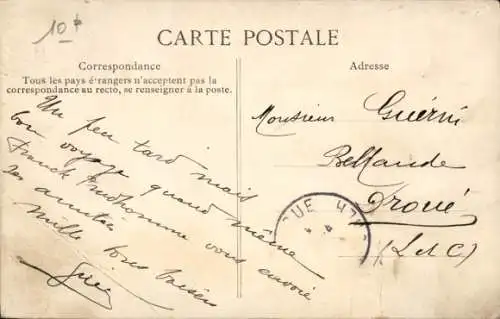 10f
CARTE POSTALE
Correspondance
Tous les pays étrangers n'acceptent pas la
correspondance au recto, se renseigner à la poste.
Un peu tard mais
bon voyage quand même
Franck Prudhomme vous envoie
ses amitiés
Mille bons baisers
Adresse
Monsieur Guérni
Bellande
Droué
(L et C)
OUE 47